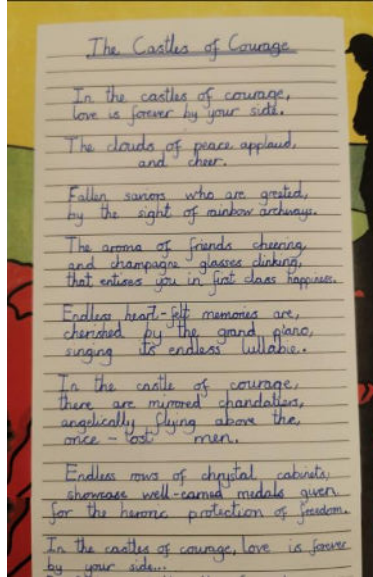 The Castles of Courage
In the castles of courage,
love is forever by your side.
The clouds of peace applaud,
and cheer.
Fallen saviors who are greeted,
by the sight of rainbow archways.
The aroma of friends cheering,
and champagne glasses clinking,
that entises you in first class happiness.
Endless heart-felt memories are,
cherished by the grand piano,
singing its endless lullabie..
In the castle of courage,
there are mirrored chandaliers,
angelically flying above the,
once - lost men.
Endless rows of chrystal cabinets,
showcase well-earned medals given
for the heroric protection of freedom.
In the castles of courage, love is forever
by your side...